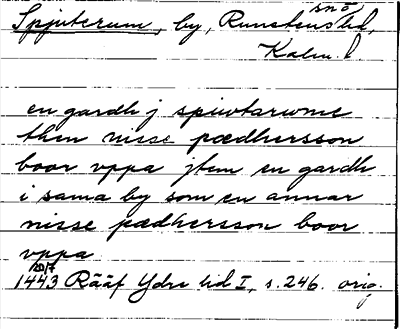 Spjuterum, by, Runstens sn o hd,
Kalm. l.
en gardh j spiwtarwme
then nisse pædhersson
boor vppa jtem en gardh
i sama by som en annar
nisse pædhersson boor
vppa
20/7
1443 Rääf Ydre hd I, s. 246. orig.